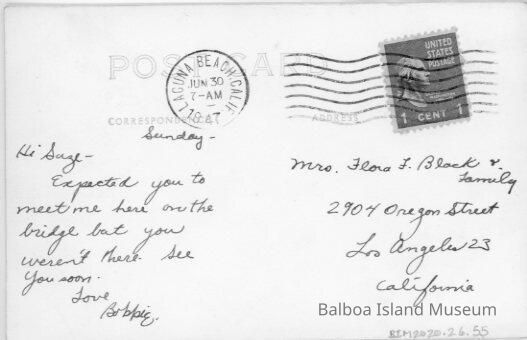 POST CARD
LAGUNA BEACH, CALIF.
JUN 30
7-AM
1947
UNITED
STATES
POSTAGE
1 CENT 1
CORRESPONDENCE
ADDRESS
Sunday-
Hi Suze-
Expected you to
meet me here on the
bridge but you
weren't there. See
you soon.
Love
Bobbie.
Mrs. Flora F. Black &
Family
2904 Oregon Street
Los Angeles 23
California
Balboa Island Museum
BIM2020.26.55